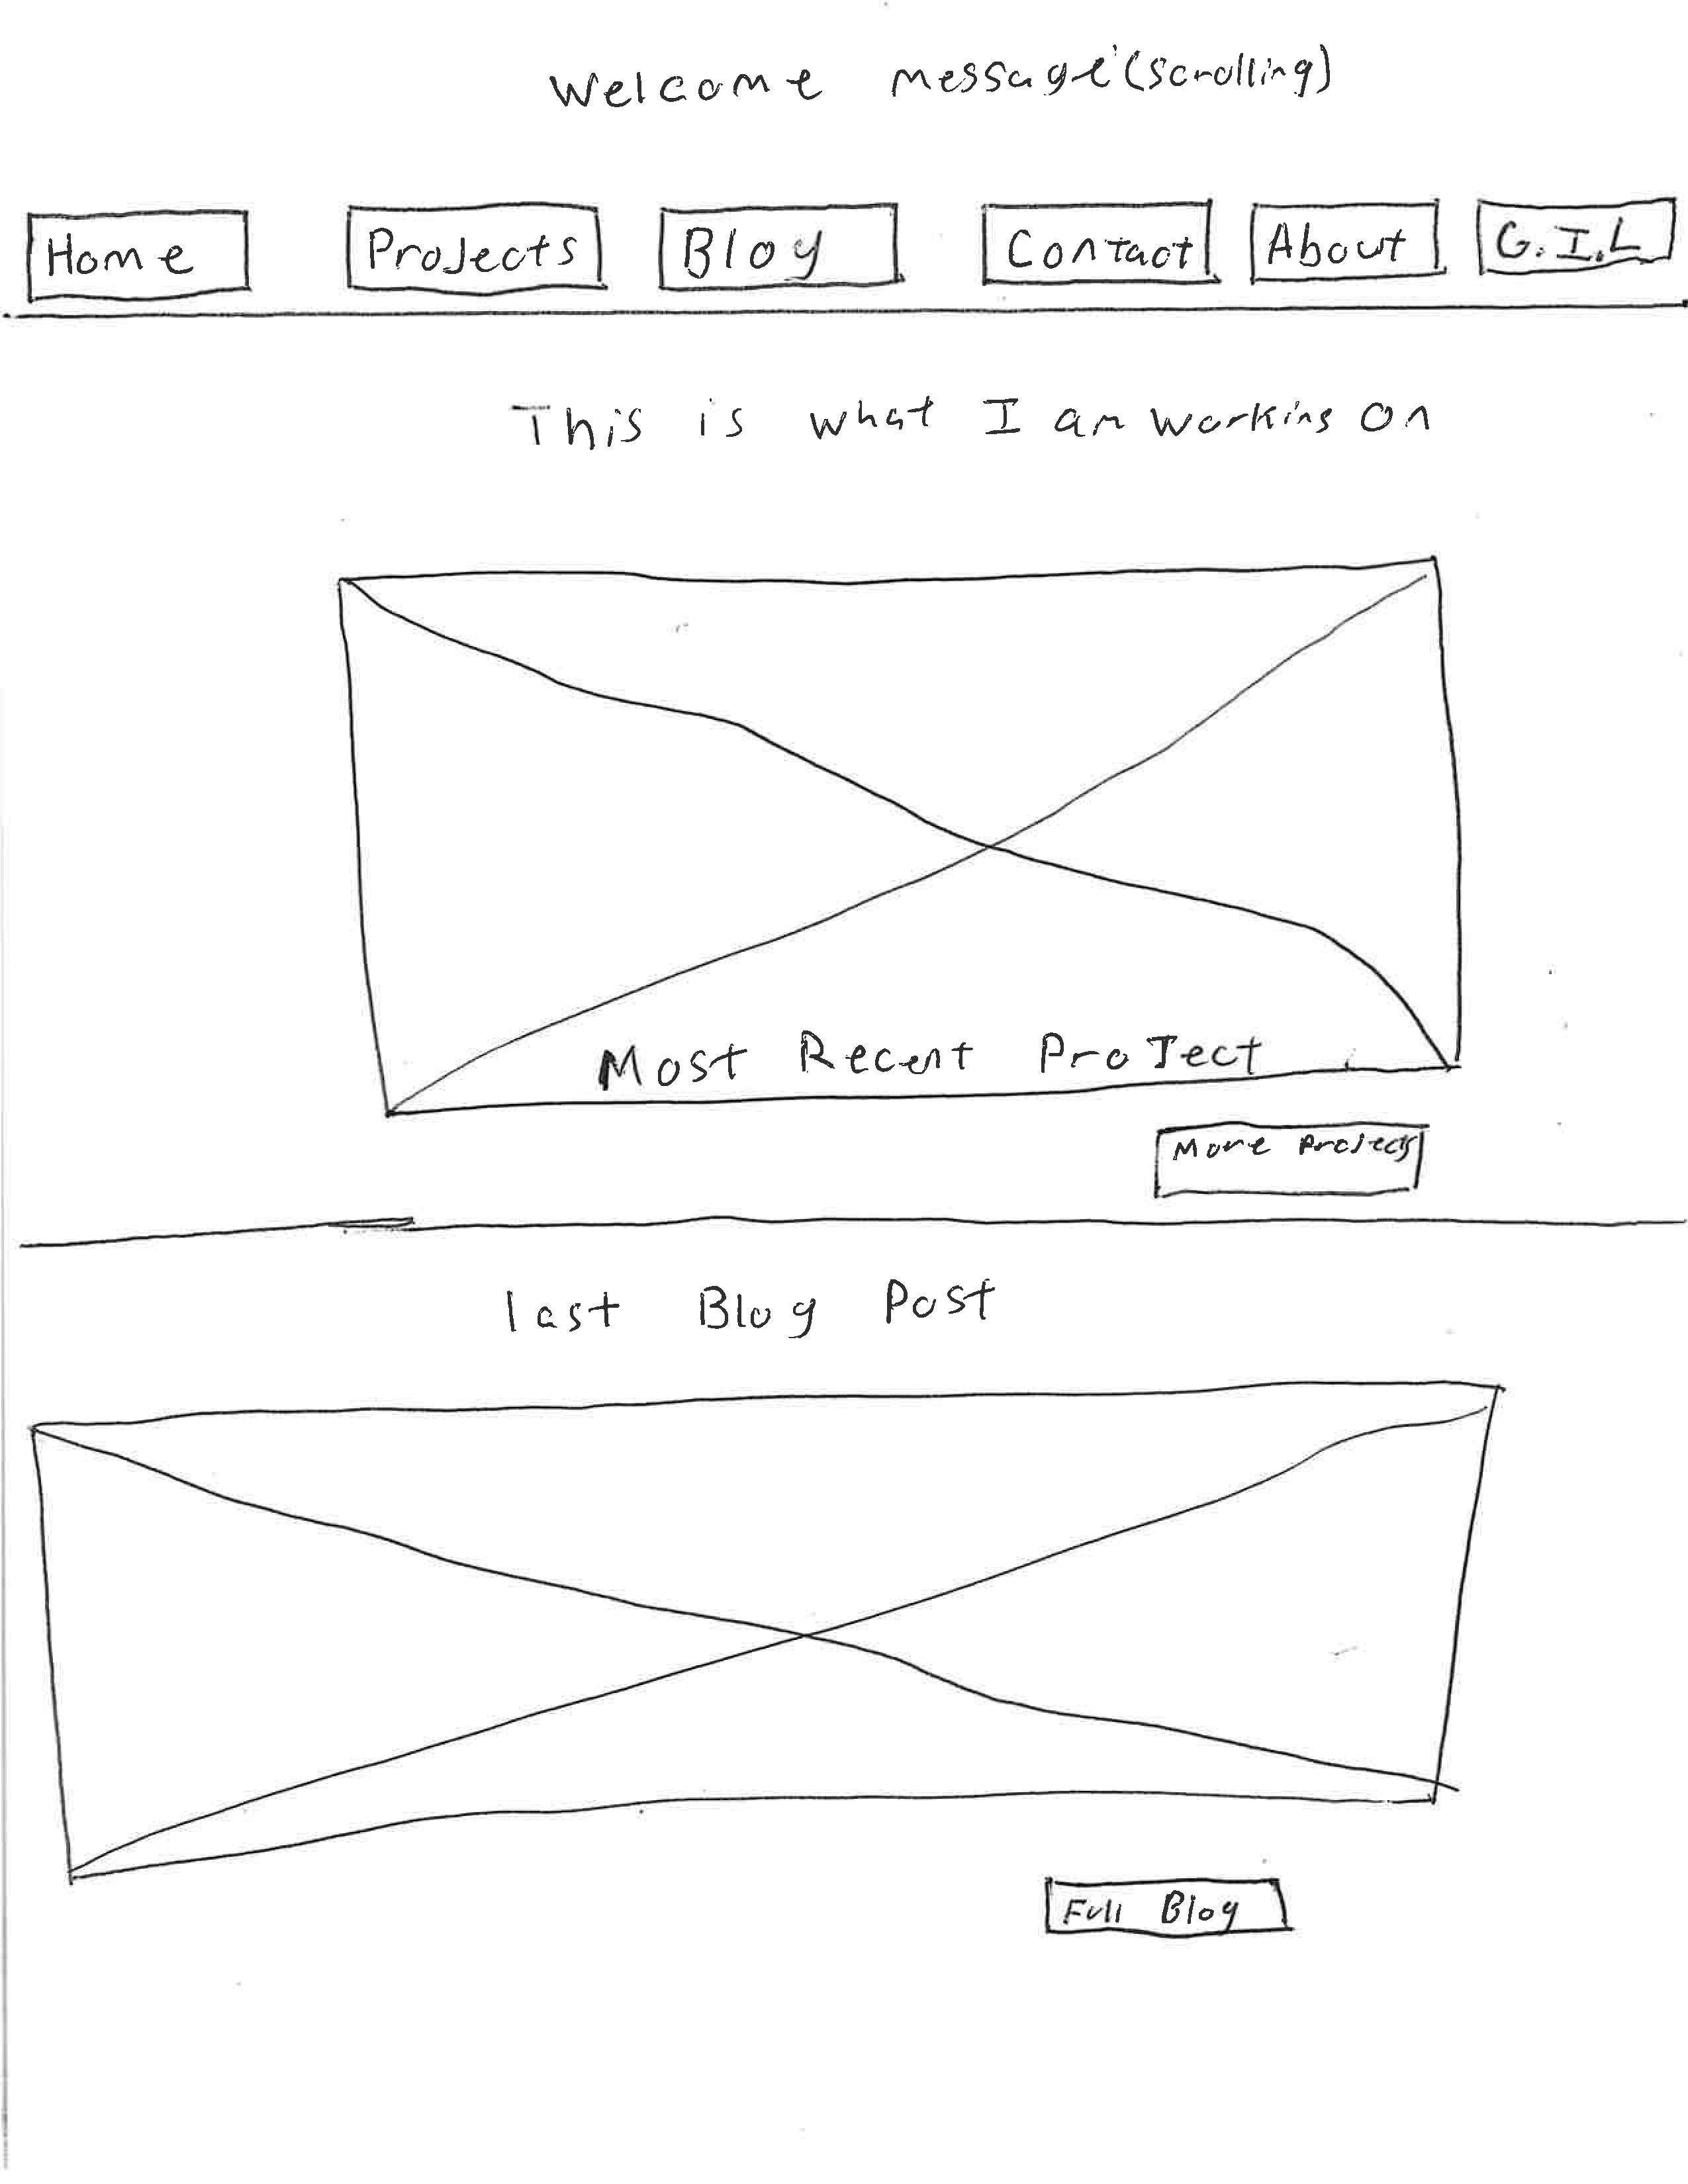 Welcome message (scrolling)
Home Projects Blog Contact About G.I.L
This is what I am working on
Most Recent Project
More Projects
last Blog Post
Full Blog